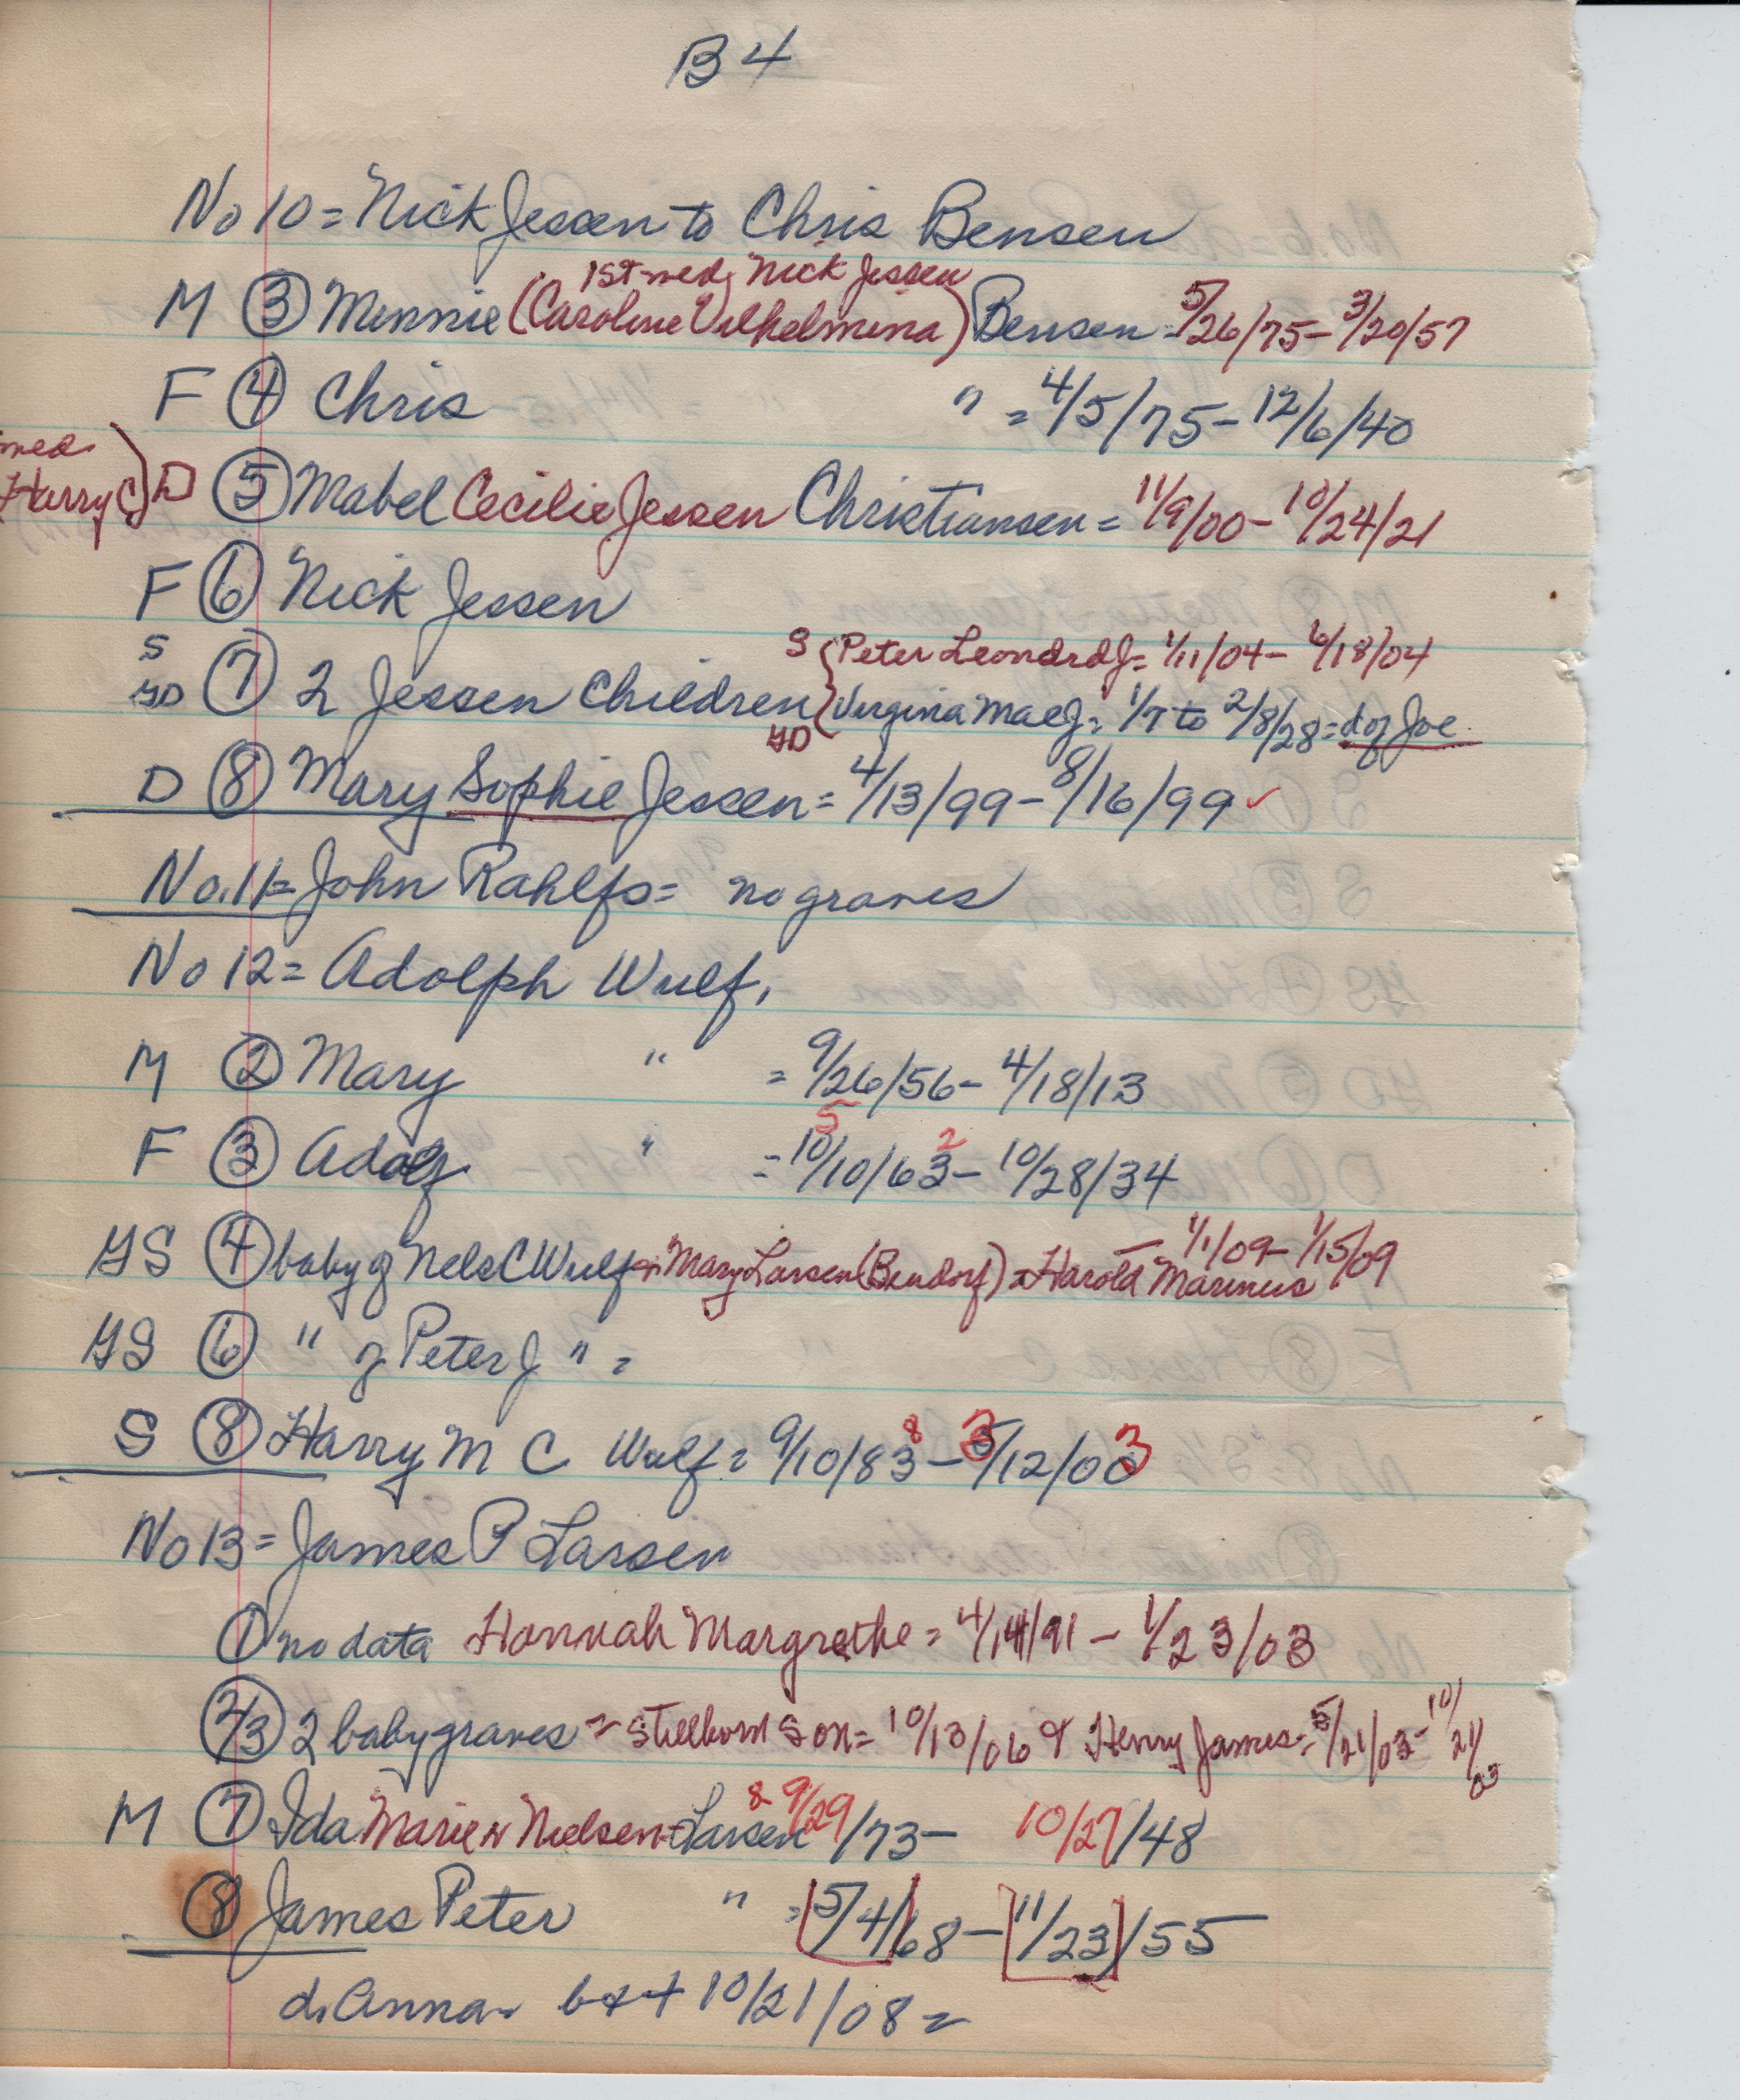 B4
No 10 = Nick Jessen to Chris Bensen
1st med, Nick Jessen
M ③ Minnie (Caroline Vilhelmina) Bensen = 5/26/75 - 3/20/57
F ④ Chris " = 4/5/75 - 12/6/40
med
Harry C) D ⑤ Mabel Cecilie Jessen Christiansen = 11/9/00 - 10/24/21
F ⑥ Nick Jessen
S S { Peter Leonard J = 1/11/04 - 6/18/04
GD ⑦ 2 Jessen Children { Virginia Mae J = 1/7 to 2/8/28 = d of Joe
GD
D ⑧ Mary Sophie Jessen = 4/13/99 - 8/16/99 ✓
No. 11 = John Rahlfs = no graves
No 12 = Adolph Wulf,
M ② Mary " = 9/26/56 - 4/18/13
5 2
F ③ " = 10/10/63 - 10/28/34
- 1/1/09 - 1/15/09
GS ④ baby of Nels C Wulf Mary Larsen (Bendorf) = Harold Marinus
GS ⑥ " of Peter J " =
8 3 3
S ⑧ Harry M C Wulf = 9/10/83 - 5/12/00
No 13 = James P Larsen
① no data Hannah Margrethe = 4/14/91 - 1/23/03
2/3 2 baby graves = stillborn son = 10/13/06 & Henry James = 5/21/03 - 10/21/03
M ⑦ Ida Marie Nielsen Larsen 8- 9/29/73 - 10/27/48
⑧ James Peter " = [5/4/]68 - [11/23]/55
d. Anna b & + 10/21/08 =